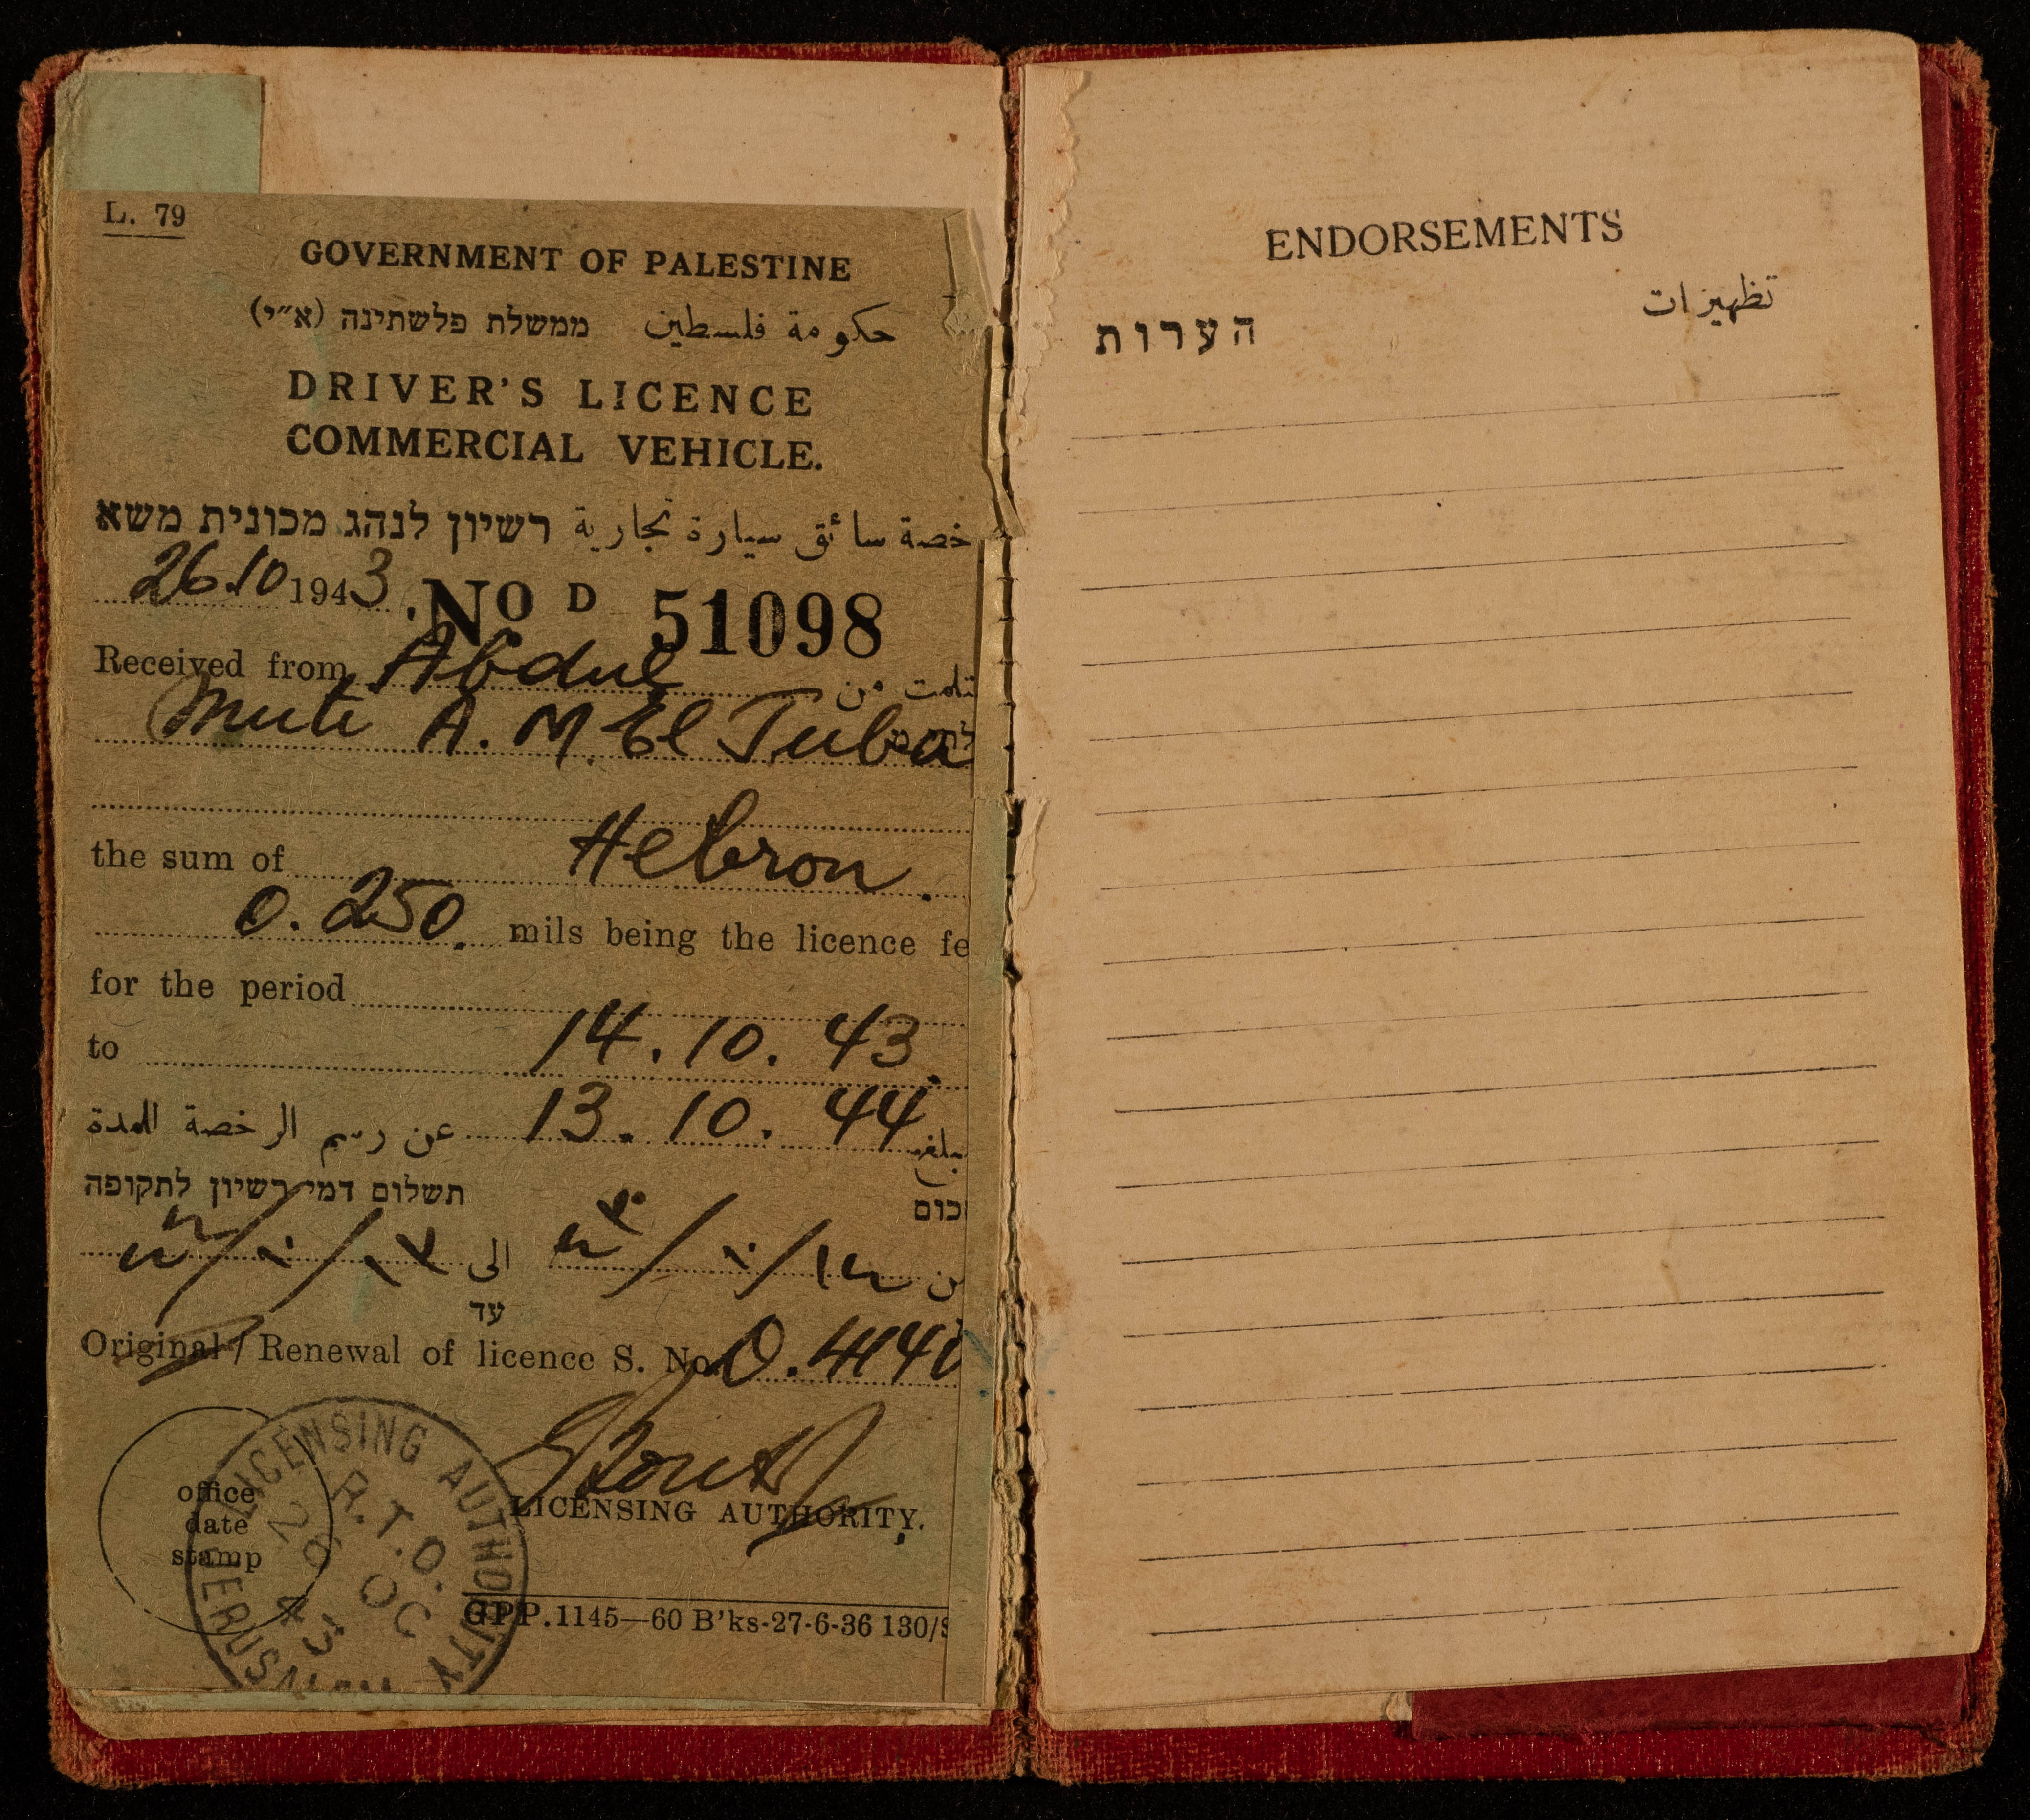 L. 79
GOVERNMENT OF PALESTINE
حكومة فلسطين ממשלת פלשתינה (א״י)
DRIVER'S LICENCE
COMMERCIAL VEHICLE.
خصة سائق سيارة تجارية רשיון לנהג מכונית משא
26.10 1943. No D 51098
Received from Abdul من
Muti A. M. El Tuba
Hebron.
the sum of
0.250. mils being the licence fe
for the period
14.10.43.
to
13.10.44
عن رسم الرخصة للمدة
תשלום דמי רשיון לתקופה
כום
١٤/١٠/٤٣ الى ١٣/١٠/٤٤
עד
Original / Renewal of licence S. No.
office
date
stamp
LICENSING AUTHORITY
R.T.O.
26 OC
43
JERUSALEM
LICENSING AUTHORITY.
GPP.1145—60 B'ks-27-6-36 130/S
ENDORSEMENTS
تظهيرات
הערות